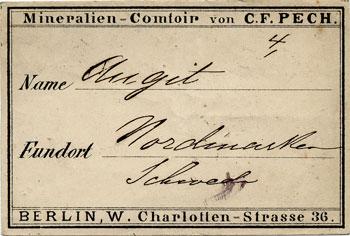 Mineralien-Comtoir von C.F. PECH.
4,
Name Augit
Fundort Nordmarken
Schweden
BERLIN, W. Charlotten-Strasse 36.